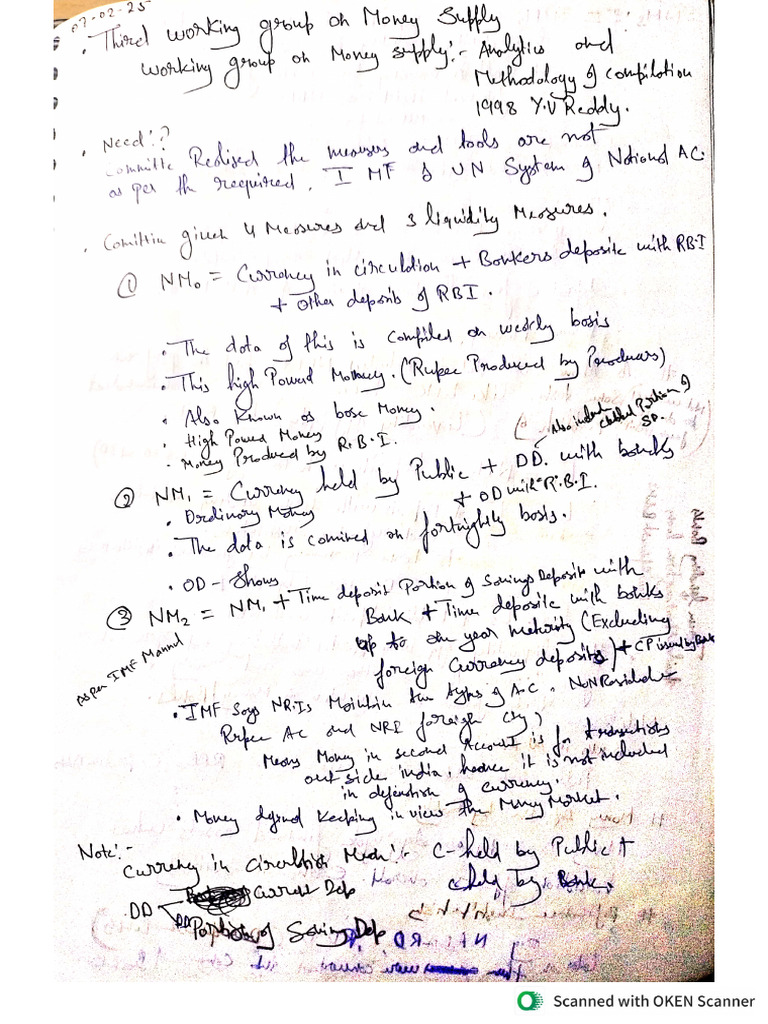 07-02-25
. Third working group on Money Supply
working group on Money supply:- Analytics and
Methodology of compilation
1998 Y.V Reddy.
. Need:?
committe Realised the measures and tools are not
as per th required. IMF & UN System of National AC.
. Comittee given 4 Measures and 3 liquidity Measures.
① NM0 = Currency in circulation + Bankers deposite with RBI
+ other deposits of RBI.
. The data of this is compiled on weekly basis
. This high Powerd Money. (Rupee Produced by Producers)
. Also known as base Money.
. High Powerd Money
. Money Produced by R.B.I.
Also Portion of
SD.
② NM1 = Currency held by Public + DD. with banks
+ OD with R.B.I.
. Ordinary Money
. The data is on fortnightly basis.
. OD - Shows
③ NM2 = NM1 + Time deposit Portion of Savings Deposite with
Bank + Time deposite with banks
up to one year maturity (Excluding
foreign currency deposits) + CP issued by Bank
as per IMF Manual
. IMF Says NRIs Maintain two types of A.C. NonResidential
Rupee AC and NRI foreign
Means Money in second Account is for transactions
out side india, hence it is not included
in defenition of currency.
. Money defined keeping in view the Money Market.
Note:-
Currency in circulation :- C-held by Public +
C held by Bank.
DD
Current Dep
DD Portion of Saving Dep
Scanned with OKEN Scanner